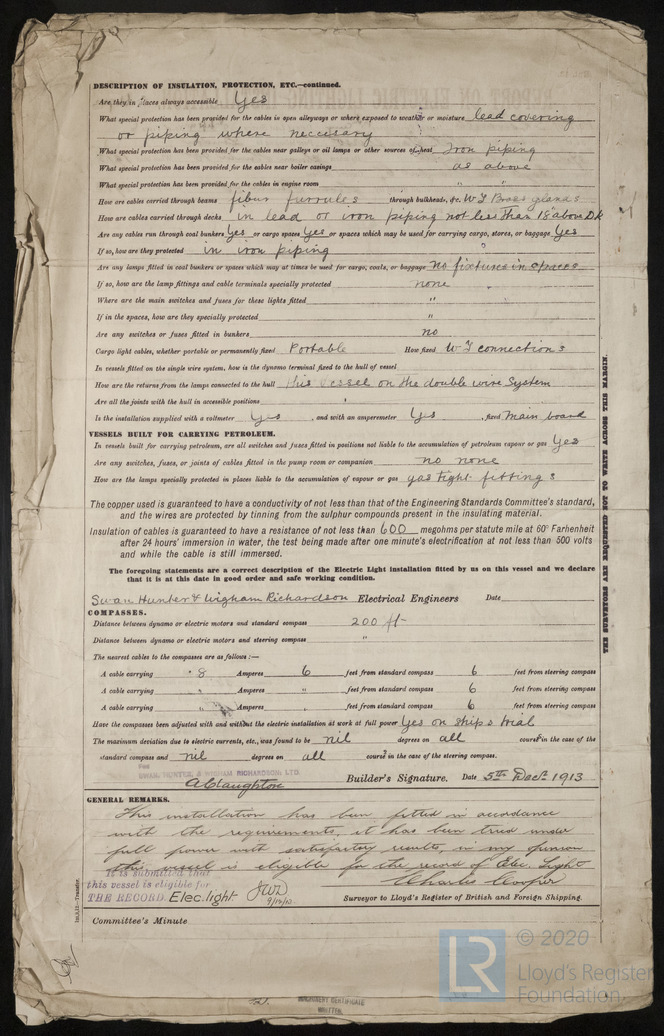 DESCRIPTION OF INSULATION, PROTECTION, ETC.—continued.
Are they in places always accessible Yes
What special protection has been provided for the cables in open alleyways or where exposed to weather or moisture lead covering
or piping where neccisary
What special protection has been provided for the cables near galleys or oil lamps or other sources of heat Iron piping
What special protection has been provided for the cables near boiler casings as above
What special protection has been provided for the cables in engine room " "
How are cables carried through beams fibre furrules through bulkheads, &c. W.T Brass glands
How are cables carried through decks in lead or iron piping not less than 18" above Dk
Are any cables run through coal bunkers Yes or cargo spaces Yes or spaces which may be used for carrying cargo, stores, or baggage Yes
If so, how are they protected in iron piping
Are any lamps fitted in coal bunkers or spaces which may at times be used for cargo, coals, or baggage no fixtures in spaces
If so, how are the lamp fittings and cable terminals specially protected none
Where are the main switches and fuses for these lights fitted "
If in the spaces, how are they specially protected "
Are any switches or fuses fitted in bunkers no
Cargo light cables, whether portable or permanently fixed Portable How fixed W.T connections
In vessels fitted on the single wire system, how is the dynamo terminal fixed to the hull of vessel
How are the returns from the lamps connected to the hull this vessel on the double wire System
Are all the joints with the hull in accessible positions "
Is the installation supplied with a voltmeter Yes , and with an amperemeter Yes , fixed Main board
VESSELS BUILT FOR CARRYING PETROLEUM.
In vessels built for carrying petroleum, are all switches and fuses fitted in positions not liable to the accumulation of petroleum vapour or gas Yes
Are any switches, fuses, or joints of cables fitted in the pump room or companion no none
How are the lamps specially protected in places liable to the accumulation of vapour or gas gas tight fittings
The copper used is guaranteed to have a conductivity of not less than that of the Engineering Standards Committee's standard,
and the wires are protected by tinning from the sulphur compounds present in the insulating material.
Insulation of cables is guaranteed to have a resistance of not less than 600 megohms per statute mile at 60° Farhenheit
after 24 hours' immersion in water, the test being made after one minute's electrification at not less than 500 volts
and while the cable is still immersed.
The foregoing statements are a correct description of the Electric Light installation fitted by us on this vessel and we declare
that it is at this date in good order and safe working condition.
Swan Hunter & Wigham Richardson Electrical Engineers Date
COMPASSES.
Distance between dynamo or electric motors and standard compass 200 ft
Distance between dynamo or electric motors and steering compass "
The nearest cables to the compasses are as follows:—
A cable carrying 8 Amperes 6 feet from standard compass 6 feet from steering compass
A cable carrying " Amperes " feet from standard compass 6 feet from steering compass
A cable carrying " Amperes " feet from standard compass 6 feet from steering compass
Have the compasses been adjusted with and without the electric installation at work at full power Yes on ships trial
The maximum deviation due to electric currents, etc., was found to be nil degrees on all course in the case of the
standard compass and nil degrees on all course in the case of the steering compass.
FOR
SWAN, HUNTER, & WIGHAM RICHARDSON, LTD.
Builder's Signature. Date 5th Decr 1913
GENERAL REMARKS.
This installation has been fitted in accordance
with the requirements, it has been tried under
full power with satisfactory results, in my opinion
this vessel is eligible for the record of Elec. Light
It is submitted that
this vessel is eligible for
THE RECORD. Elec. light JWD
9/12/13
Charles Cooper
Surveyor to Lloyd's Register of British and Foreign Shipping.
Committee's Minute
THE SURVEYORS ARE REQUESTED NOT TO WRITE ACROSS THIS MARGIN.
LR © 2020
Lloyd's Register
Foundation
MACHINERY CERTIFICATE
WRITTEN.